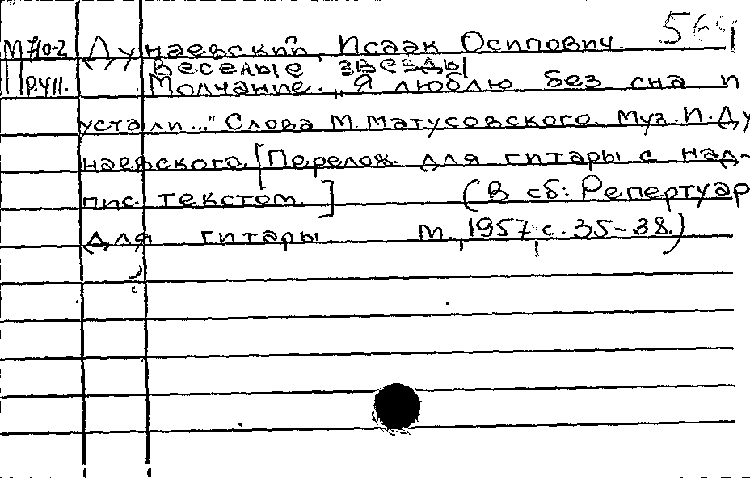 564
М 710-2 Дунаевский, Исаак Осипович.
Веселые звезды
Р.VII. Молчание. „Я люблю без сна и
устали..." Слова М. Матусовского. Муз. И. Ду
наевского. [Перелож. для гитары с над-
пис. текстом.] (В сб: Репертуар
для гитары М., 1957, с. 35-38.)